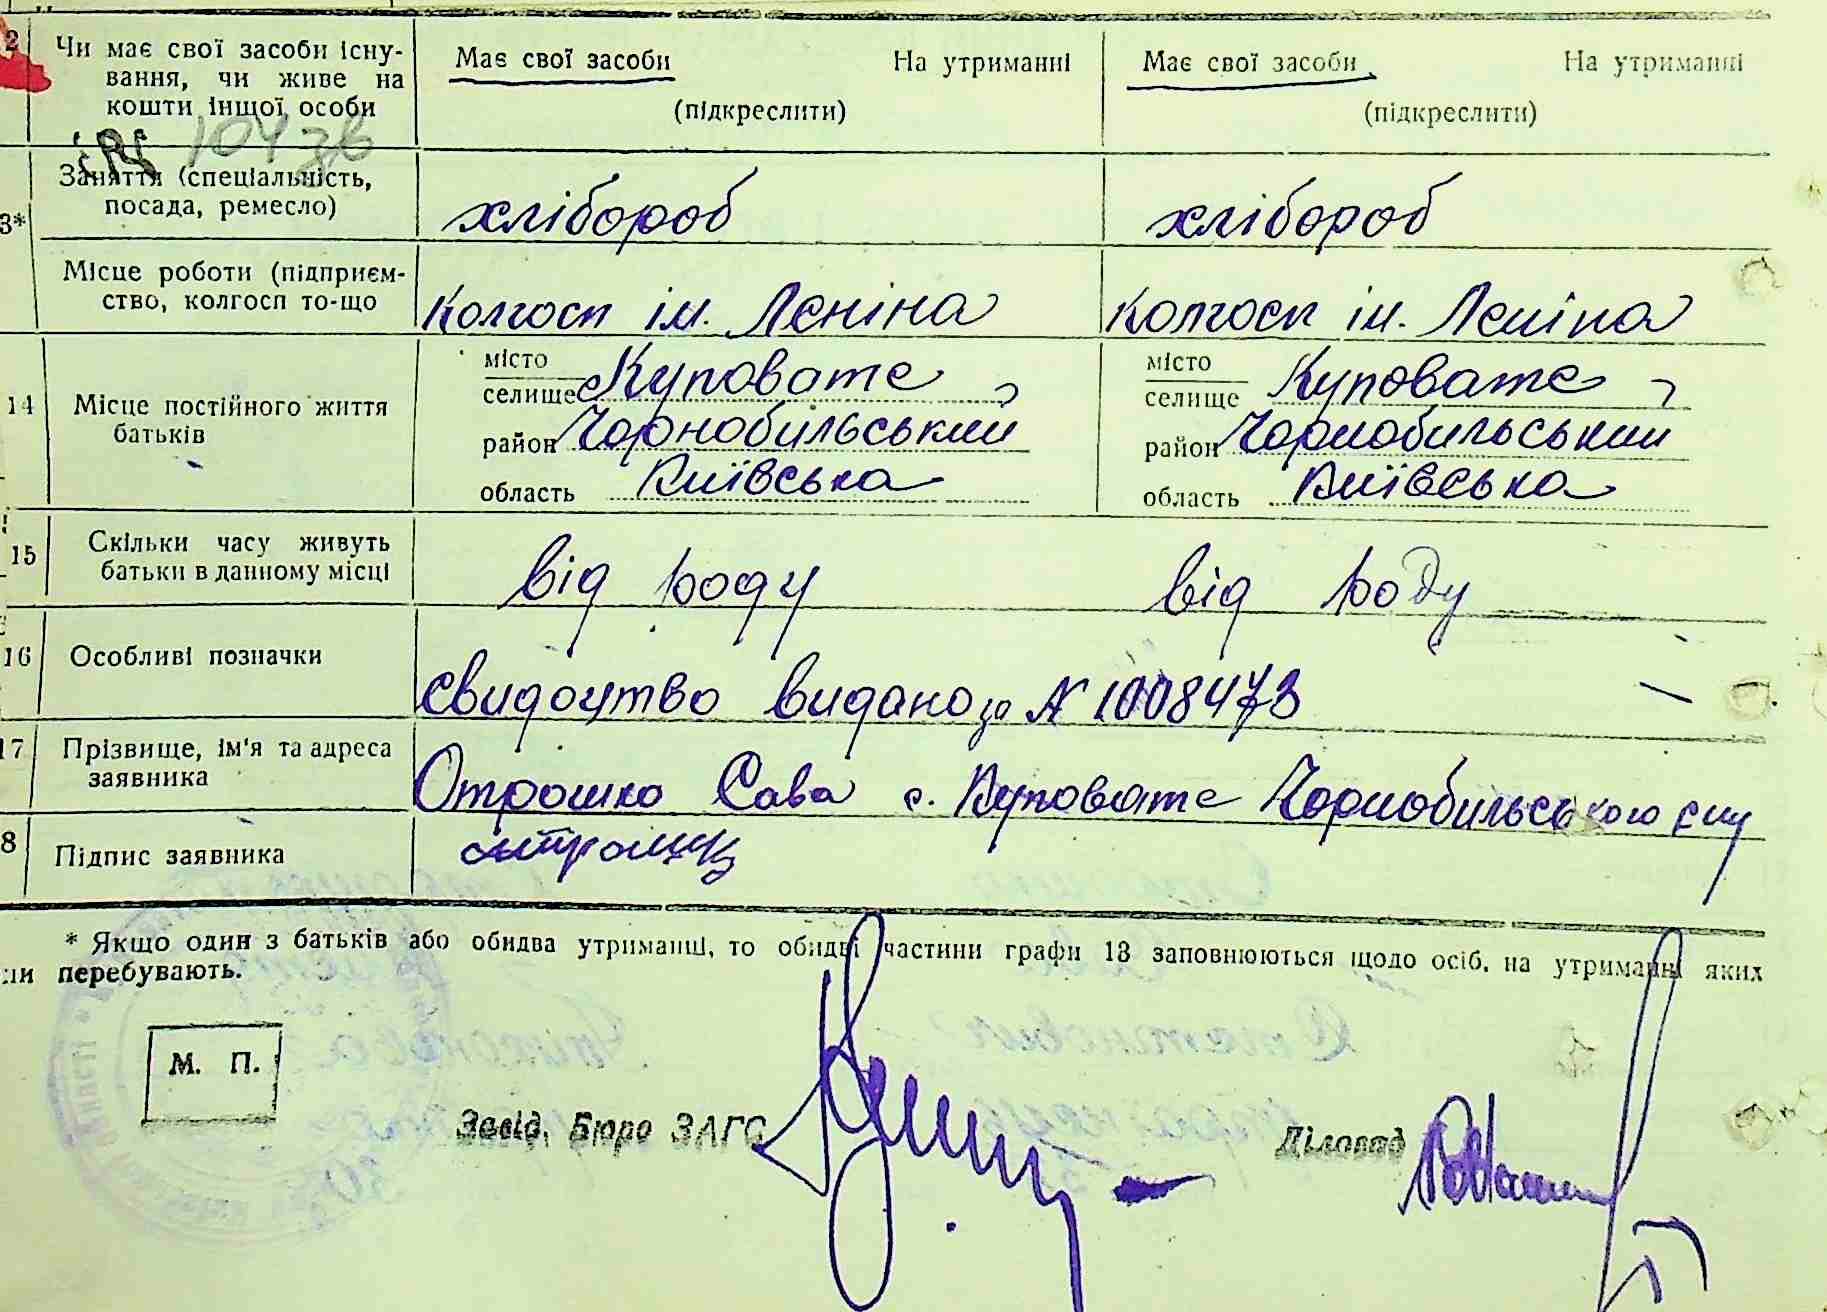 2 Чи має свої засоби існу- Має свої засоби На утриманні Має свої засоби На утриманні
вання, чи живе на
кошти іншої особи (підкреслити) (підкреслити)
104 зв
3* Заняття (спеціальність, хлібороб хлібороб
посада, ремесло)
Місце роботи (підприєм- Колгосп ім. Леніна Колгосп ім. Леніна
ство, колгосп то-що
місто місто
селище Куповате селище Куповате
14 Місце постійного життя район Чорнобильський район Чорнобильський
батьків
область Київська область Київська
15 Скільки часу живуть від роду від роду
батьки в данному місці
16 Особливі позначки
свидоцтво видано за № 1008473 —
17 Прізвище, ім'я та адреса Отрошко Сава с. Куповате Чорнобильського
заявника
8 Підпис заявника
* Якщо один з батьків або обидва утриманці, то обидві частини графи 13 заповнюються щодо осіб, на утриманні яких
ни перебувають.
М. П.
Завід. Бюро ЗАГС Діловод